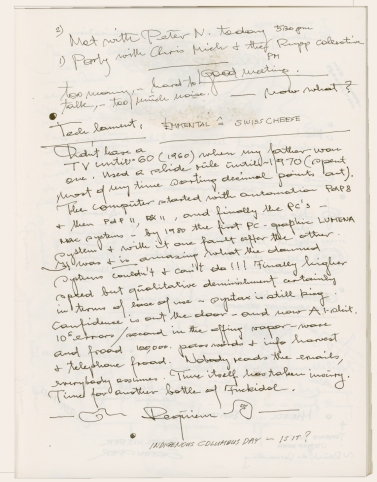 2) Met with Peter N. today 5:00pm
1) Party with Chris Mich & the Rupp collective
PM
Good meeting.
too many, - hard to
talk, - too much noise. — now what?
Tech lament, EMMENTAL = SWISS CHEESE
Didn't have a
TV until '60 (1960) when my father won
one. Used a slide rule until 1970 (spent
most of my time sorting decimal points out).
The computer started with automation PDP8
& then PDP 11, and finally the PC's -
Mac systems - by 1980 the first PC - graphic LUMENA
system & with it one fault after the other.
It was & is amazing what the damned
systems couldn't & can't do!!! Finally higher
speed but qualitative diminishment certainly
in terms of ease of use - syntax is still king.
Confidence is out the door - and now A.I. shit.
10⁶ errors/second in the offing vapor-ware
and fraud 100,000. passwords & info harvest
& telephone fraud. Nobody reads the emails,
everybody assumes. Time itself has taken injury.
Time for another bottle of
Requiem
INDIGENOUS COLUMBUS DAY - IS IT?